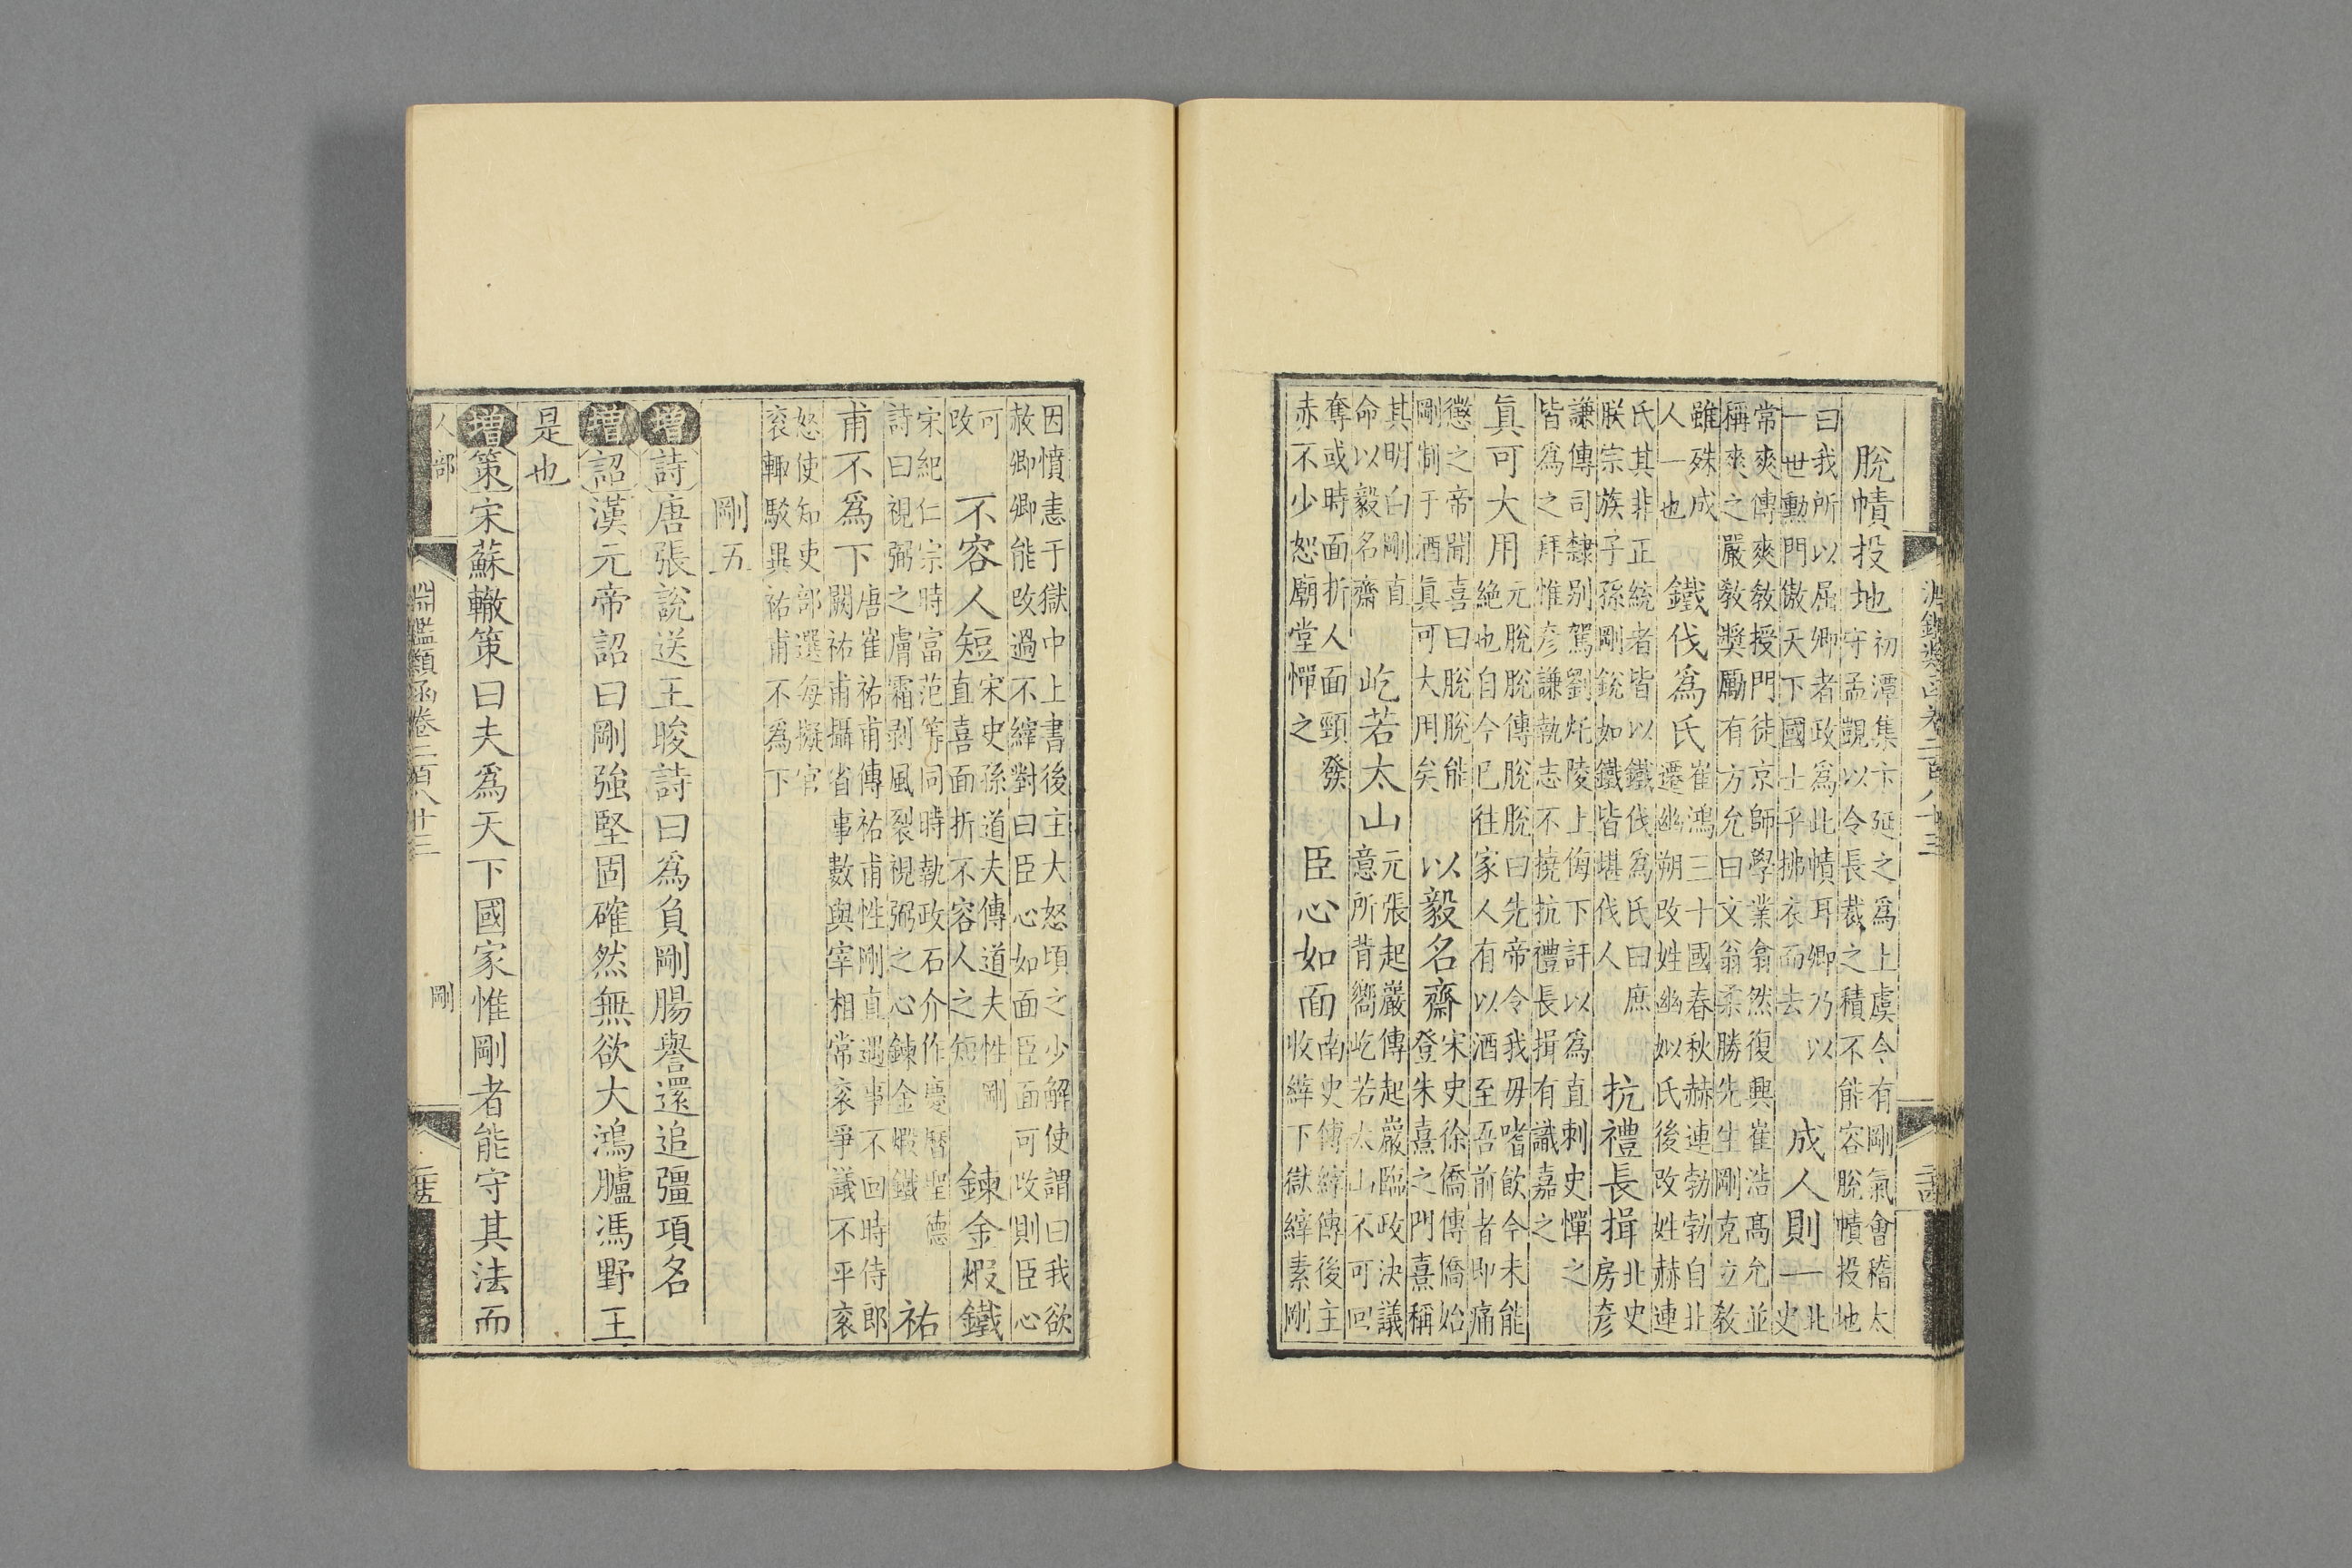 淵鑑類函卷二百八十三
脫幘投地
初潭集卞延之爲上虞令有剛氣會稽太
守孟覬以令長裁之積不能容脫幘投地
曰我所以屈卿者政爲此幘耳卿乃以
一世勳門傲天下國士乎拂衣而去
成人則一
北
史
常爽傳爽教授門徒京師學業翕然復興崔浩高允並
稱爽之嚴教奬勵有方允曰文翁柔勝先生剛克立教
雖殊成
人一也
鐵伐爲氏
崔鴻三十國春秋赫連勃勃自北
遷幽朔改姓幽姒氏後改姓赫連
氏其非正統者皆以鐵伐爲氏曰庶
朕宗族子孫剛銳如鐵皆堪伐人
抗禮長揖
北史
房彥
謙傳司隸別駕劉灹陵上侮下訐以爲直刺史憚之
皆爲之拜惟彥謙執志不撓抗禮長揖有識嘉之
眞可大用
元脫脫傳脫脫曰先帝令我毋嗜飲今未能
絶也自今已往家人有以酒至吾前者即痛
懲之帝聞喜曰脫脫能
剛制于酒眞可大用矣
以毅名齋
宋史徐僑傳僑始
登朱熹之門熹稱
其明白剛直
命以毅名齋
屹若太山
元張起巖傳起巖臨政決議
意所背嚮屹若太山不可回
奪或時面折人面頸發
赤不少恕廟堂憚之
臣心如面
南史傅縡傳後主
收縡下獄縡素剛
因憤恚于獄中上書後主大怒頃之少解使謂曰我欲
赦卿卿能改過不縡對曰臣心如面臣面可改則臣心
可
改
不容人短
宋史孫道夫傳道夫性剛
直喜面折不容人之短
鍊金煆鐵
宋紀仁宗時富范等同時執政石介作慶曆聖德
詩曰視弼之膚霜剥風裂視弼之心鍊金煆鐵
祐
甫不爲下
唐崔祐甫傳祐甫性剛直遇事不回時侍郎
闕祐甫攝省事數與宰相常衮爭議不平衮
怒使知吏部選每擬官
衮輒駁異祐甫不爲下
剛五
增詩唐張說送王晙詩曰爲負剛腸譽還追彊項名
增詔漢元帝詔曰剛強堅固確然無欲大鴻臚馮野王
是也
增策宋蘇轍策曰夫爲天下國家惟剛者能守其法而
人部
剛
淵鑑類函卷二百八十三